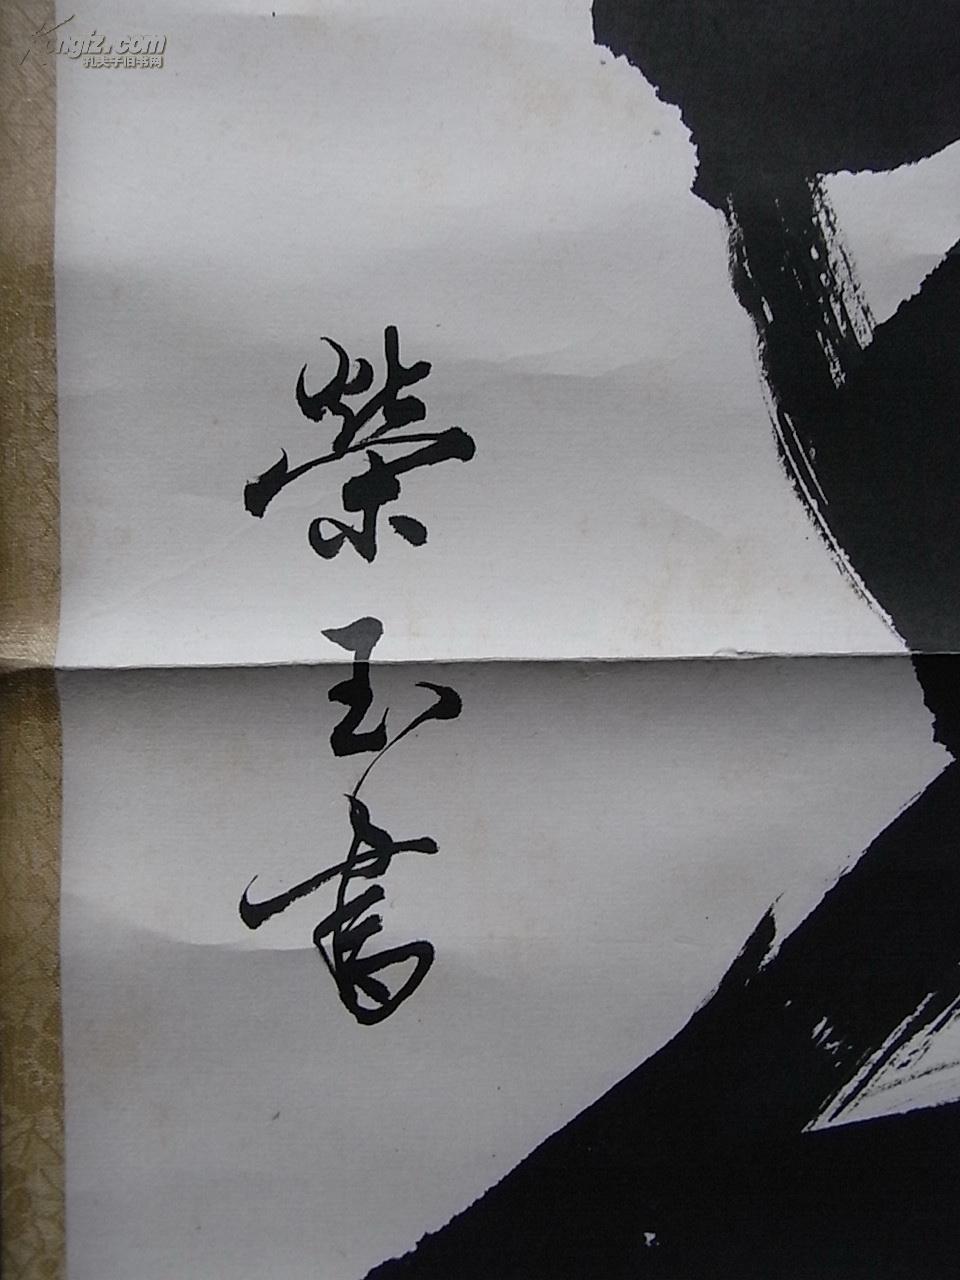 Kongfz.com
孔夫子旧书网
榮玉書